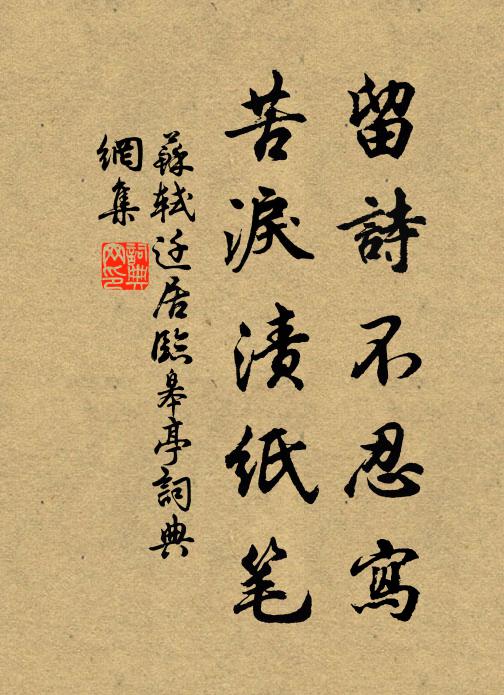 留詩不忍寫
苦淚漬纸笔
蘇軾迁居臨皋亭詞典
網集
詞典
网印